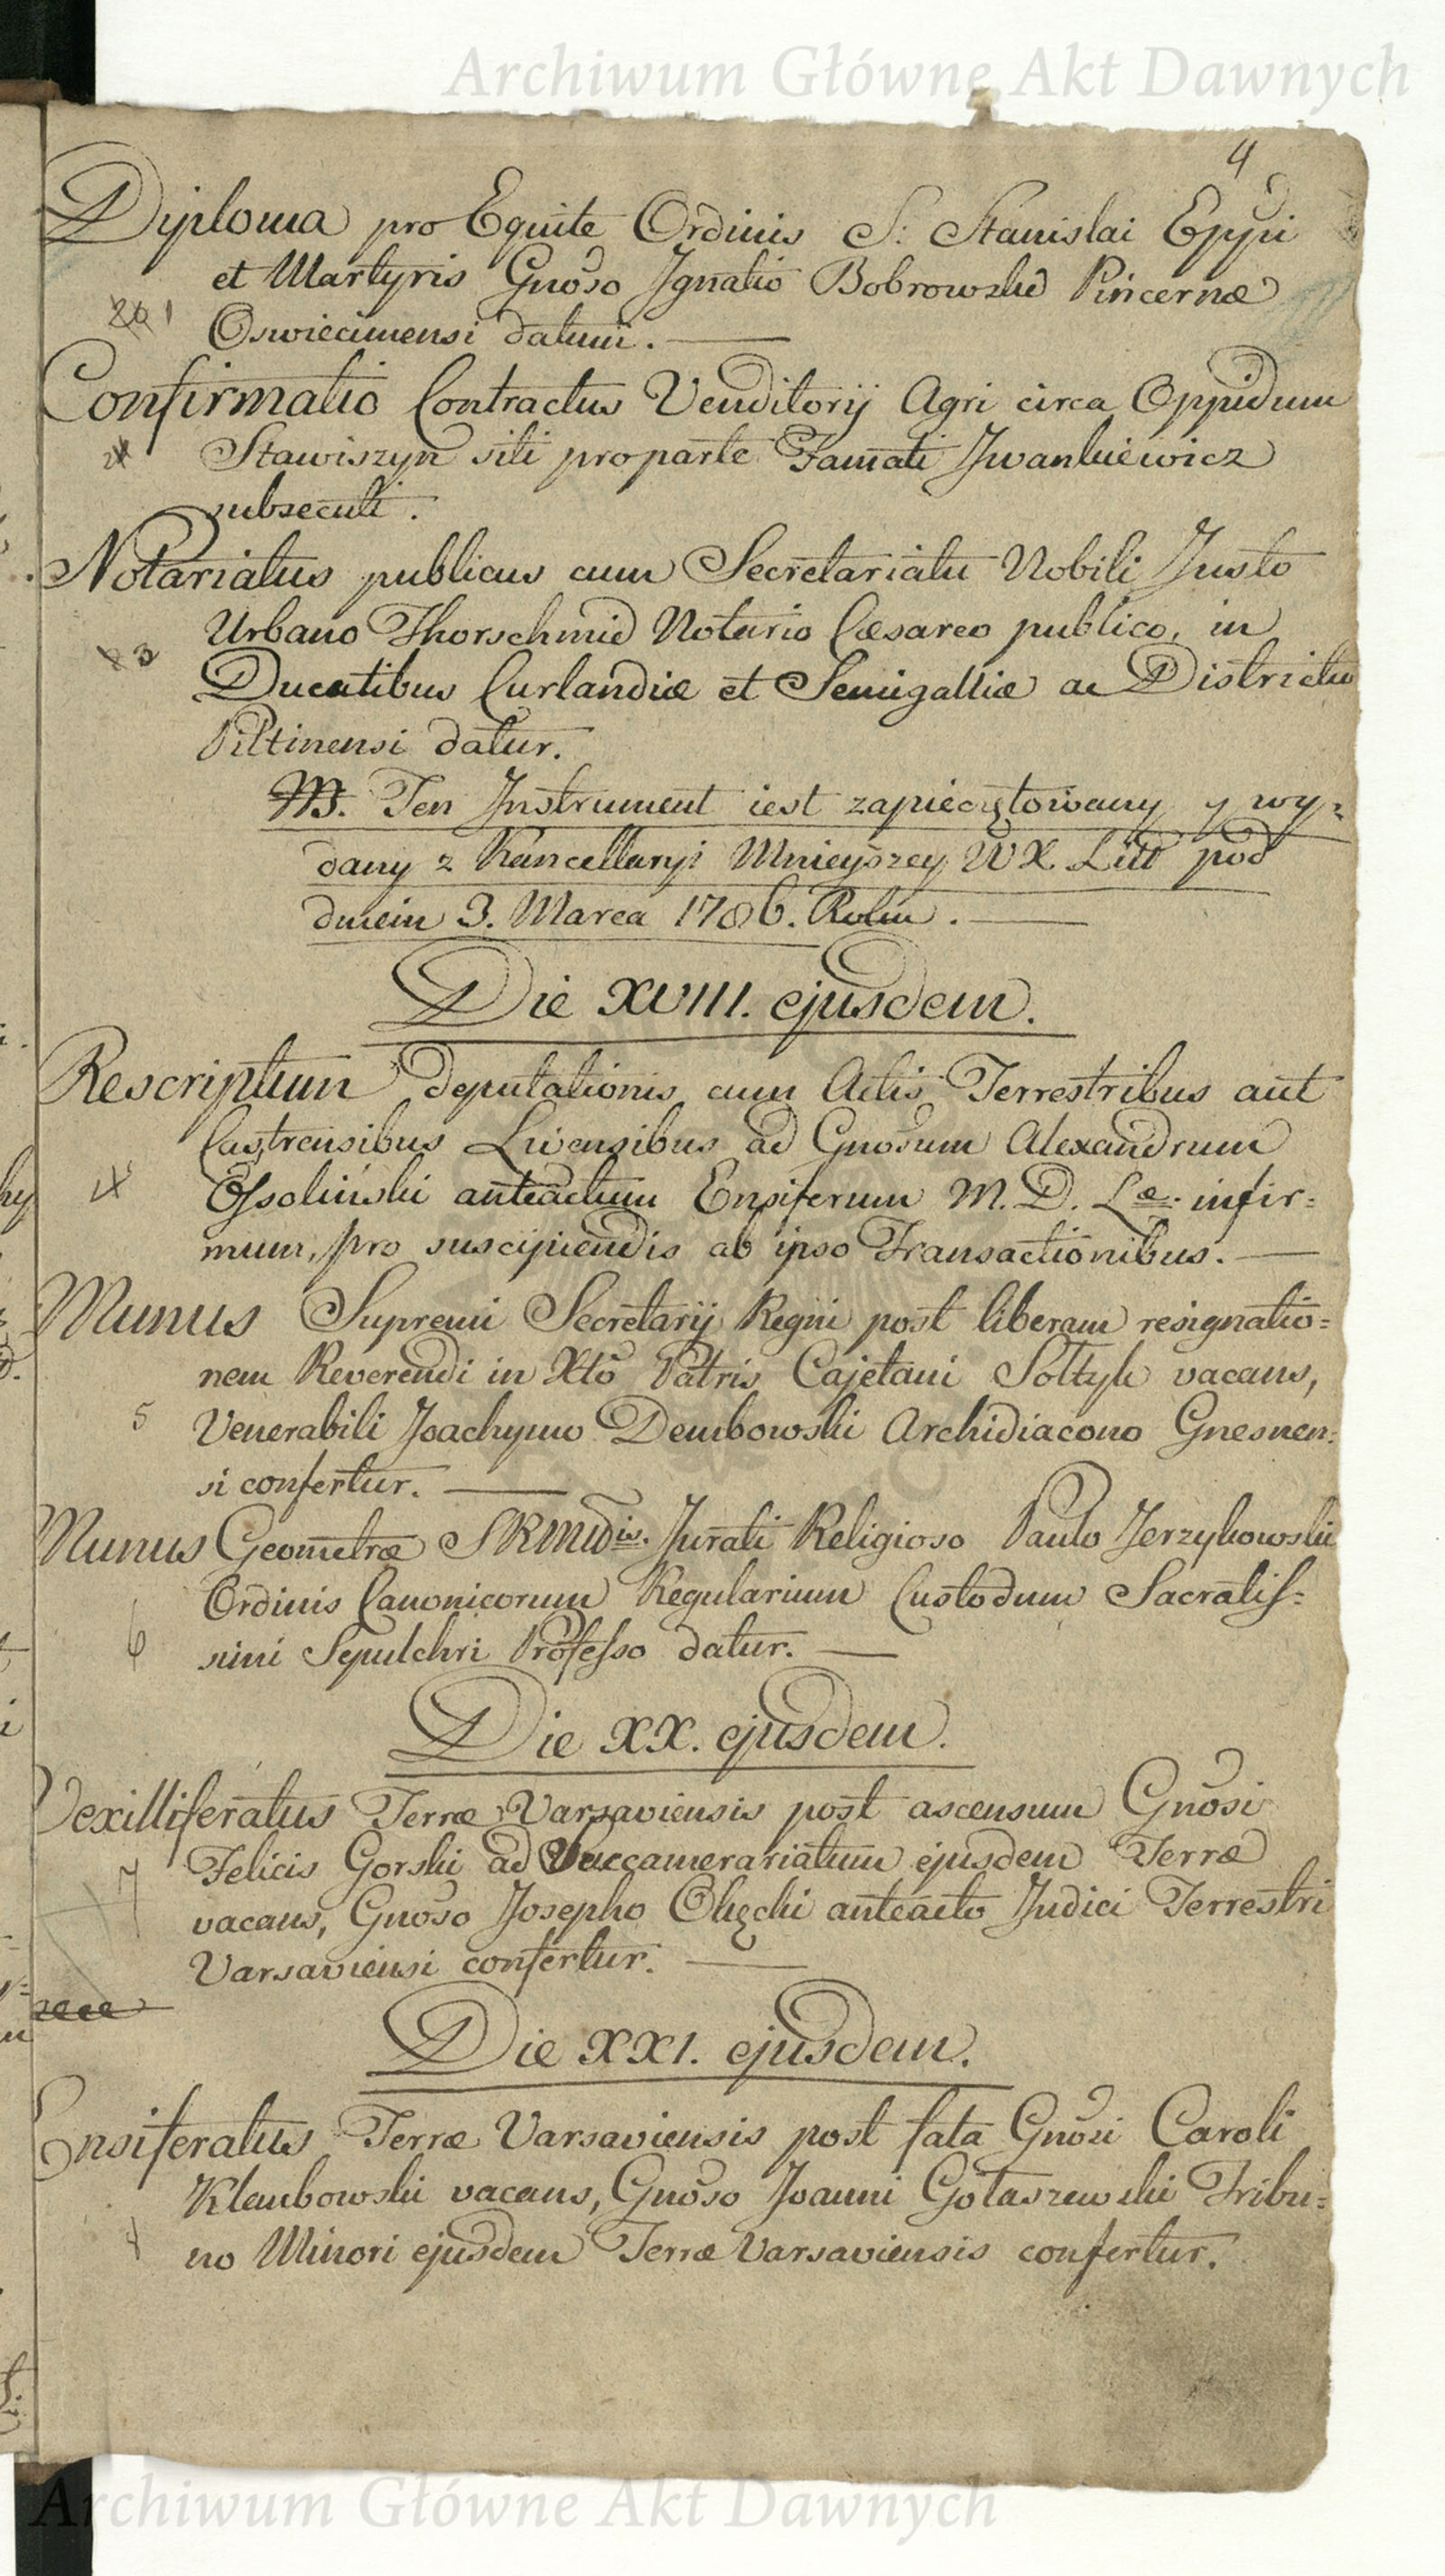 Archiwum Główne Akt Dawnych
4
Diploma pro Equite Ordinis S: Stanislai Eppi
et Martyris Gnoso Jgnatio Bobrowski Pincernæ
1
Oswiecimensi datum.
Confirmatio Contractus Venditorij Agri circa Oppidum
Stawiszyn siti pro parte Famati Jwankiewicz
subsecuti.
Notariatus publicus cum Secretariatu Nobili Justo
Urbano Thorschmid Notario Cæsareo publico, in
3
Ducatibus Curlandiæ et Semigalliæ ac Districtu
Piltinensi datur.
Ten Jnstrument iest zapieczętowany y wy=
dany z Kancellaryi Mnieyszey W X Litt pod
dniem 3. Marca 1786. Roku.
Die XVIII. ejusdem.
Rescriptum deputationis cum Actis Terrestribus aut
Castrensibus Livensibus ad Gnosum Alexandrum
4
Ossoliński anteactum Ensiferum M. D. Læ. infir=
mum, pro suscipiendis ab ipso Transactionibus.
Munus Supremi Secretarij Regni post liberam resignatio=
nem Reverendi in Xto Patris Cajetani Sołtyk vacans,
5
Venerabili Joachymo Dembowski Archidiacono Gnesnen=
si confertur.
Munus Geometræ SRMtis. Jurati Religioso Paulo Jerzykowski
Ordinis Canonicorum Regularium Custodum Sacratis=
6
simi Sepulchri Professo datur.
Die XX. ejusdem.
Vexilliferatus Terræ Varsaviensis post ascensum Gnosi
7
Felicis Gorski ad Succamerariatum ejusdem Terræ
vacans, Gnoso Josepho Olięcki anteacto Judici Terrestri
Varsaviensi confertur.
Die XXI. ejusdem.
Ensiferatus Terræ Varsaviensis post fata Gnosi Caroli
Klembowski vacans, Gnoso Joanni Gołaszewski Tribu=
no Minori ejusdem Terræ Varsaviensis confertur.
Archiwum Główne Akt Dawnych